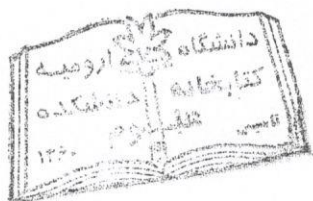 دانشگاه ارومیه
کتابخانه دانشکده
علوم
تاسیس ۱۳۶۰